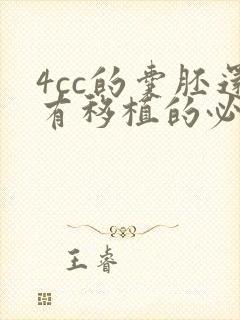 4cc的囊胚还
有移植的必
王睿